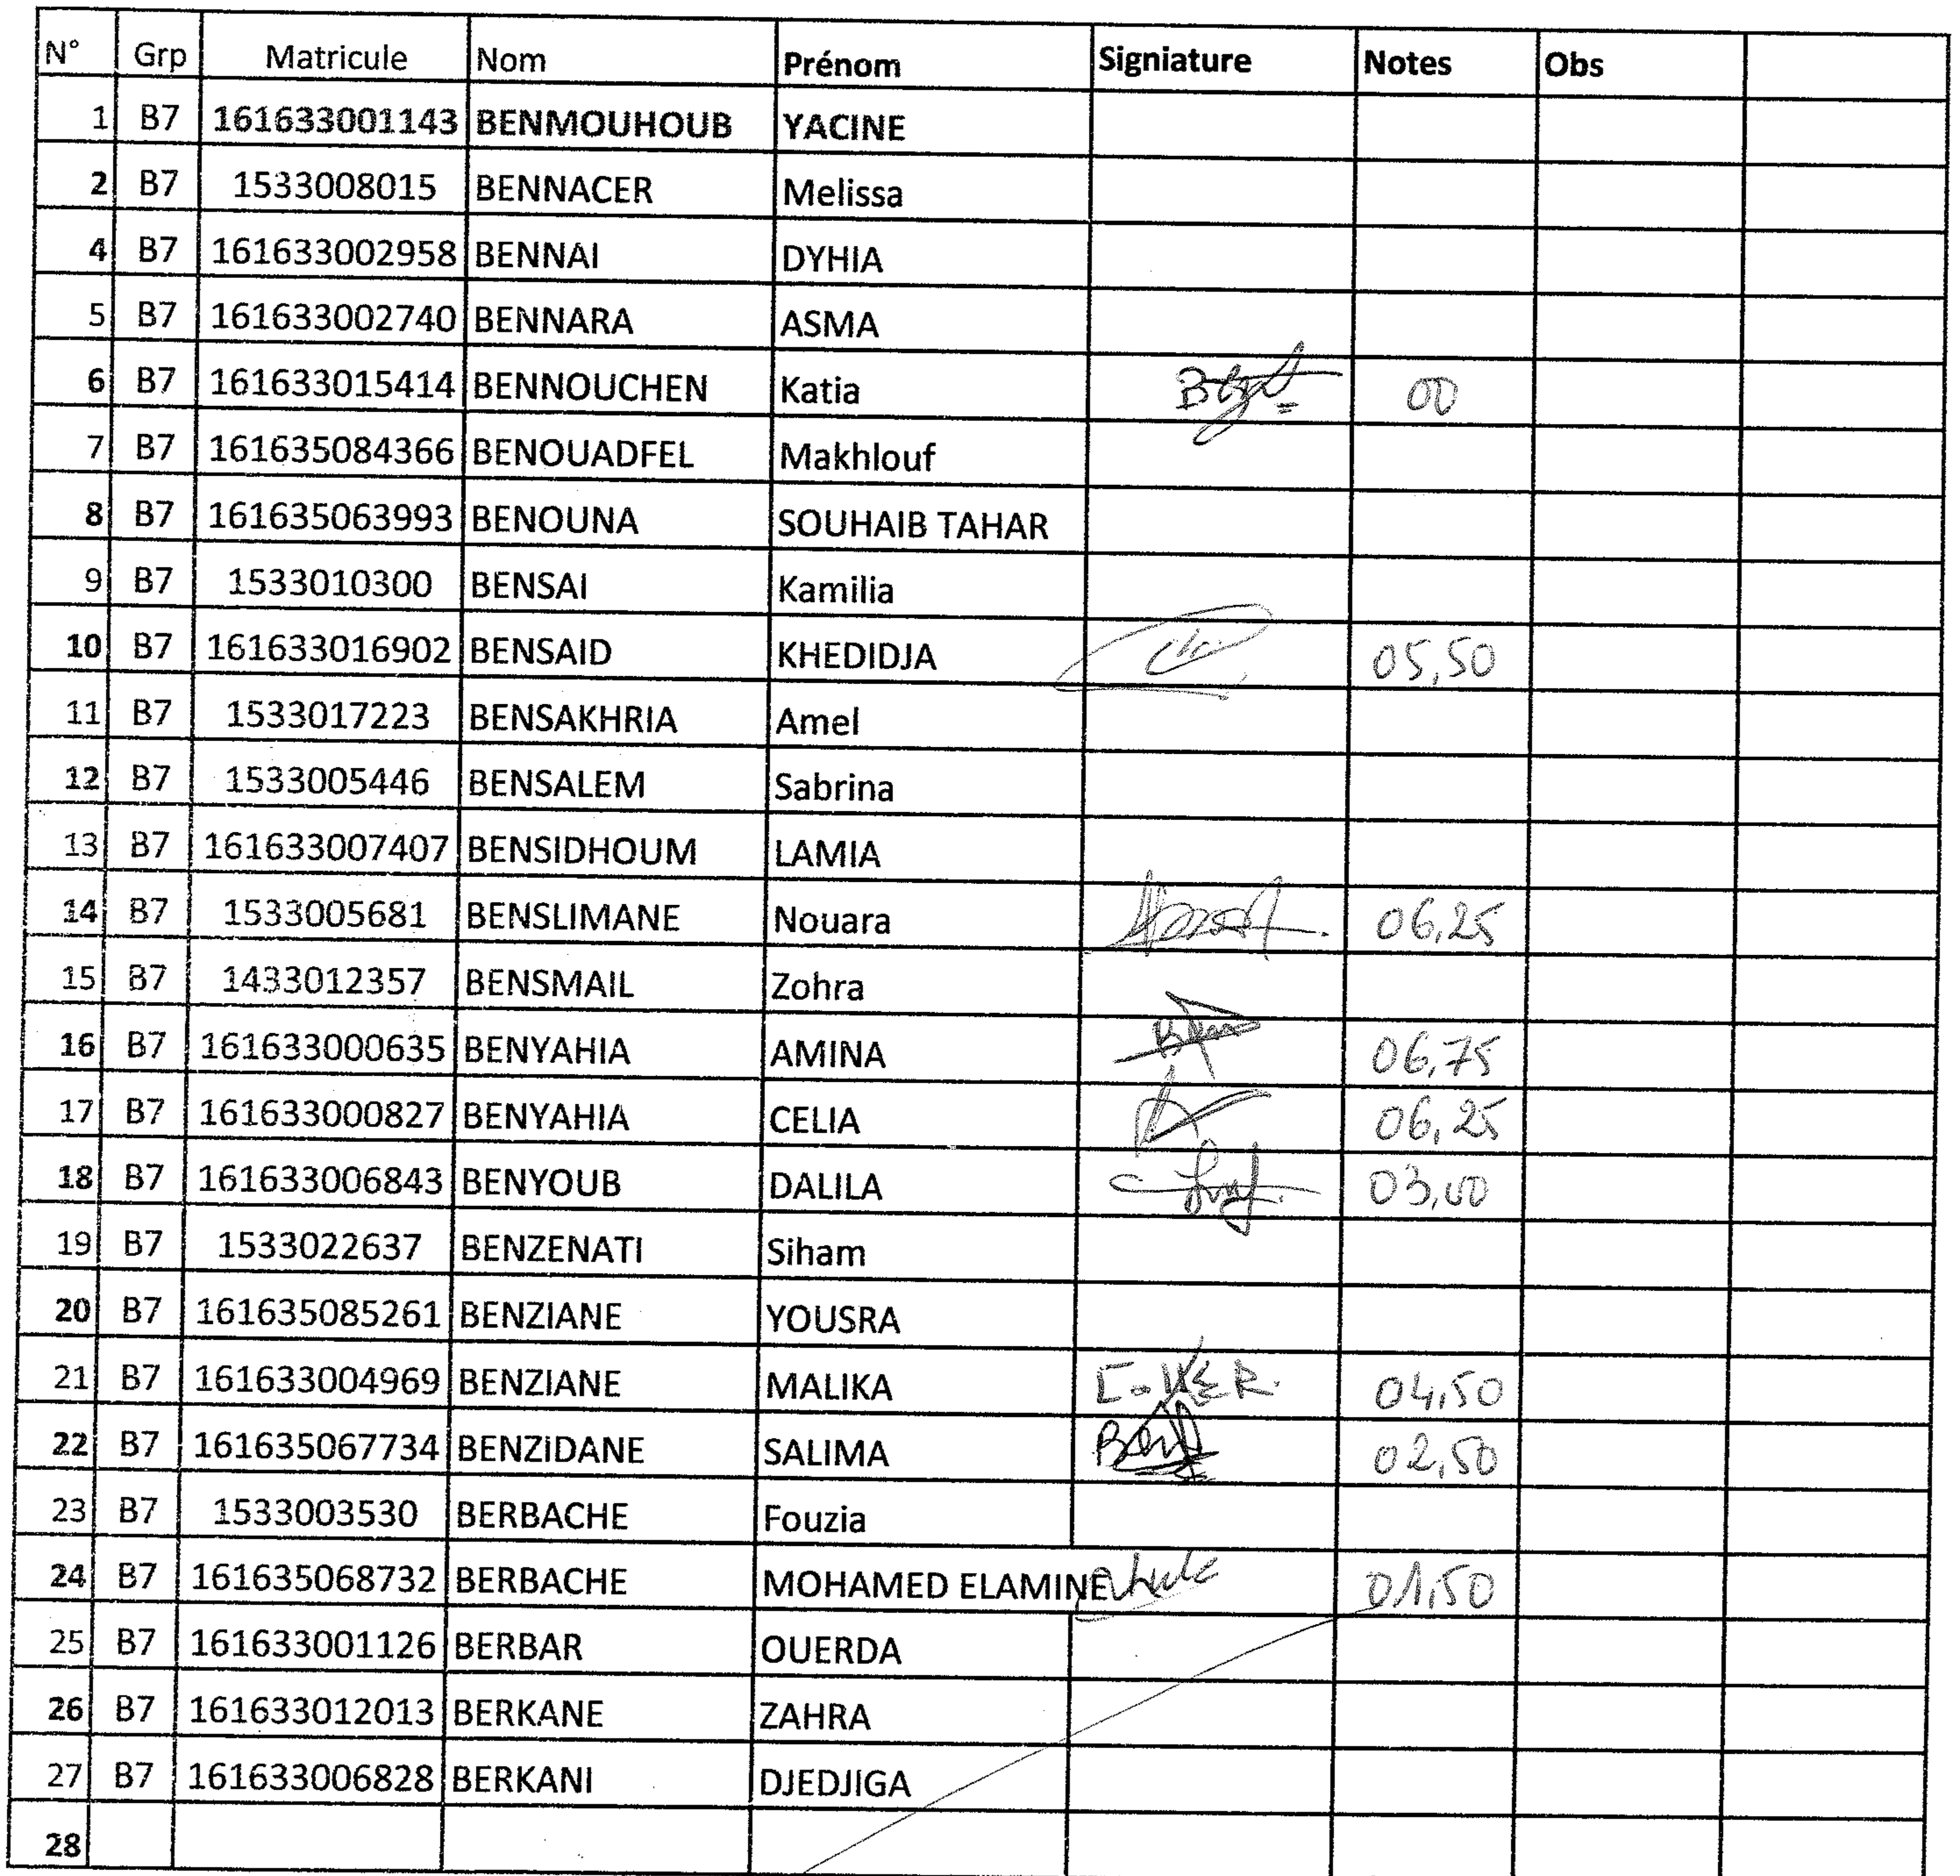 N° Grp Matricule Nom Prénom Signiature Notes Obs
1 B7 161633001143 BENMOUHOUB YACINE
2 B7 1533008015 BENNACER Melissa
4 B7 161633002958 BENNAI DYHIA
5 B7 161633002740 BENNARA ASMA
6 B7 161633015414 BENNOUCHEN Katia 00
7 B7 161635084366 BENOUADFEL Makhlouf
8 B7 161635063993 BENOUNA SOUHAIB TAHAR
9 B7 1533010300 BENSAI Kamilia
10 B7 161633016902 BENSAID KHEDIDJA 05,50
11 B7 1533017223 BENSAKHRIA Amel
12 B7 1533005446 BENSALEM Sabrina
13 B7 161633007407 BENSIDHOUM LAMIA
14 B7 1533005681 BENSLIMANE Nouara 06,25
15 B7 1433012357 BENSMAIL Zohra
16 B7 161633000635 BENYAHIA AMINA 06,75
17 B7 161633000827 BENYAHIA CELIA 06,25
18 B7 161633006843 BENYOUB DALILA 03,00
19 B7 1533022637 BENZENATI Siham
20 B7 161635085261 BENZIANE YOUSRA
21 B7 161633004969 BENZIANE MALIKA 04,50
22 B7 161635067734 BENZIDANE SALIMA 02,50
23 B7 1533003530 BERBACHE Fouzia
24 B7 161635068732 BERBACHE MOHAMED ELAMINE 01,50
25 B7 161633001126 BERBAR OUERDA
26 B7 161633012013 BERKANE ZAHRA
27 B7 161633006828 BERKANI DJEDJIGA
28